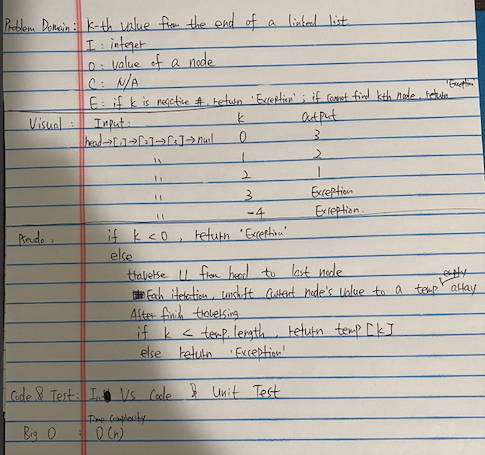 Problem Domain: k-th value from the end of a linked list
I: integer
O: value of a node
C: N/A
E: if k is negative #, return 'Exception'; if cannot find kth node, return 'Exception
Visual: Input: k Output
head→[1]→[2]→[3]→null 0 3
" 1 2
" 2 1
" 3 Exception
" -4 Exception.
Pseudo: if k < 0, return 'Exception'
else
traverse ll from head to last node
Each iteration, unshift current node's value to a temp empty array
After finish traversing
if k < temp.length, return temp [k]
else return 'Exception'
Code & Test: In VS Code & Unit Test
Time Complexity
Big O : O(n)